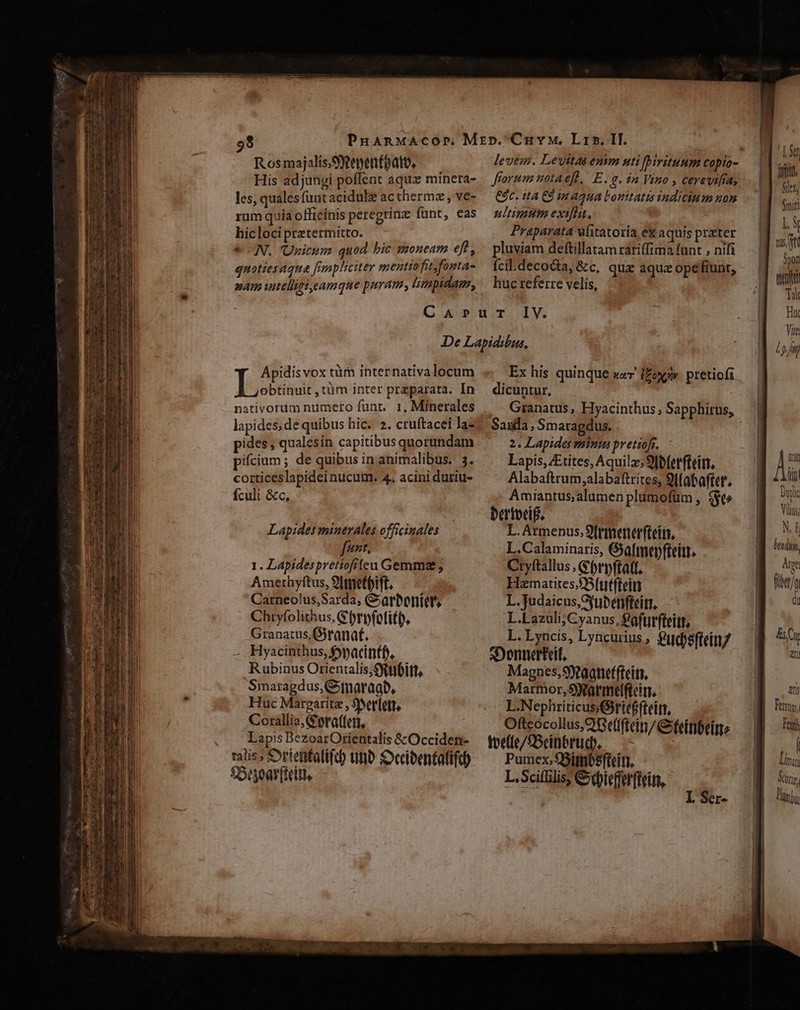 58 PHARMACOP. MED. CHYM. LIB. II.
Ros majalis, Meyenthaw.
His adjungi possent aquæ minera-
les, quales sunt acidulæ ac thermæ, ve-
rum quia officinis peregrinæ sunt, eas
hic loci prætermitto.
* N. Unicum quod hic moneam est,
quoties aquæ simpliciter mentio fit, fonta-
nam intelligi, eamque puram, limpidam,
levem. Levitas enim uti spirituum copio-
siorum nota est, E. g. in Vino, cerevisia,
&c. ita & in aqua bonitatis indicium non
ultimum existit.
Præparata usitatoria ex aquis præter
pluviam destillatam rarissima sunt, nisi
scil. decocta, &c. quæ aquæ ope fiunt,
huc referre velis,
CAPUT IV.
De Lapidibus.
LApidis vox tùm inter nativa locum
obtinuit, tùm inter præparata. In
nativorum numero sunt. 1. Minerales
lapides, de quibus hic. 2. crustacei la-
pides; quales in capitibus quorundam
piscium; de quibus in animalibus. 3.
cortices lapidei nucum. 4. acini duriu-
sculi &c,
Lapides minerales officinales
sunt,
1. Lapides pretiosi seu Gemmæ,
Amethystus, Amethist.
Carneolus, Sarda, Sardonier,
Chrysolithus, Chrysolith.
Granatus, Granat.
Hyacinthus, Hyacinth.
Rubinus Orientalis, Rubin,
Smaragdus, Smaragd,
Huc Margaritæ, Perlen,
Corallia, Corallen,
Lapis Bezoar Orientalis & Occiden-
talis, Orientalisch und Occidentalisch
Bezoarstein.
Ex his quinque κατ' ἐξοχὴν pretiosi
dicuntur.
Granatus, Hyacinthus, Sapphirus,
Sarda, Smaragdus.
2. Lapides minus pretiosi.
Lapis, Ætites, Aquilæ, Adlerstein.
Alabastrum, alabastrites, Alabaster.
Amiantus, alumen plumosum, Fe-
derweiß.
L. Armenus, Armenerstein,
L. Calaminaris, Galmeystein.
Crystallus, Chrystall.
Hæmatites, Blutstein
L. Judaicus, Judenstein.
L. Lazuli, Cyanus, Lasurstein,
L. Lyncis, Lyncurius, Luchsstein/
Donnerkeil.
Magnes, Magnetstein,
Marmor, Marmelstein.
L. Nephriticus, Griesstein,
Osteocollus, Wellstein/ Steinbein-
welle/ Beinbruch.
Pumex, Bimbsstein,
L. Scissilis, Schiefferstein,
L Ser-